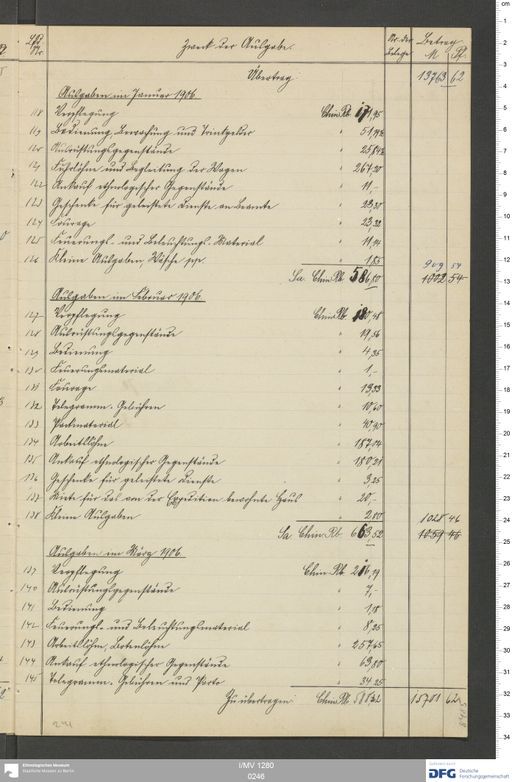 Lfd Nr.	Zweck der Ausgabe.	Nr. der Belege	Betrag M Pf.
Übertrag	13763 62
Ausgaben im Januar 1906
118 Verpflegung Chin. Rb.
119 Bedienung, Bewachung und Trinkgelder "
120 Ausrüstungsgegenstände "
121 Fuhrlöhne und Begleitung der Wagen " 267,20
122 Ankauf ethnologischer Gegenstände " 11,-
123 Geschenke für geleistete Dienste an Beamte "
124 Fourage " 23,32
125 Feuerungs- und Beleuchtungs-Material " 11,91
126 Kleine Ausgaben, Wäsche pp. " 1,85
909 54
Sa. Chin. Rb. 586,80 1002 54
Ausgaben im Februar 1906
127 Verpflegung Chin. Rb.
128 Ausrüstungsgegenstände " 19,56
129 Bedienung " 4,35
130 Feuerungsmaterial " 1,-
131 Fourage " 13,33
132 Telegramm-Gebühren " 10,60
133 Packmaterial " 40,90
134 Arbeitslöhne " 187,04
135 Ankauf ethnologischer Gegenstände " 180,31
136 Geschenke für geleistete Dienste " 3,25
137 Miete für das von der Expedition bewohnte Haus " 20,-
138 Kleine Ausgaben " 2,80
1028 46
Sa Chin. Rb. 663,52 1059 46
Ausgaben im März 1906
139 Verpflegung Chin. Rb. 216,19
140 Ausrüstungsgegenstände " 7,-
141 Bedienung " 1,18
142 Feuerungs- und Beleuchtungsmaterial " 8,25
143 Arbeitslöhne, Botenlöhne " 257,65
144 Ankauf ethnologischer Gegenstände " 63,80
145 Telegramm-Gebühren und Porto " 34,25
Zu übertragen: Chin. Rb. 15701 62
I/MV 1280
0246
Ethnologisches Museum
Staatliche Museen zu Berlin
Gefördert durch
DFG Deutsche Forschungsgemeinschaft
cm
0
1
2
3
4
5
6
7
8
9
10
11
12
13
14
15
16
17
18
19
20
21
22
23
24
25
26
27
28
29
30
31
32
33
34